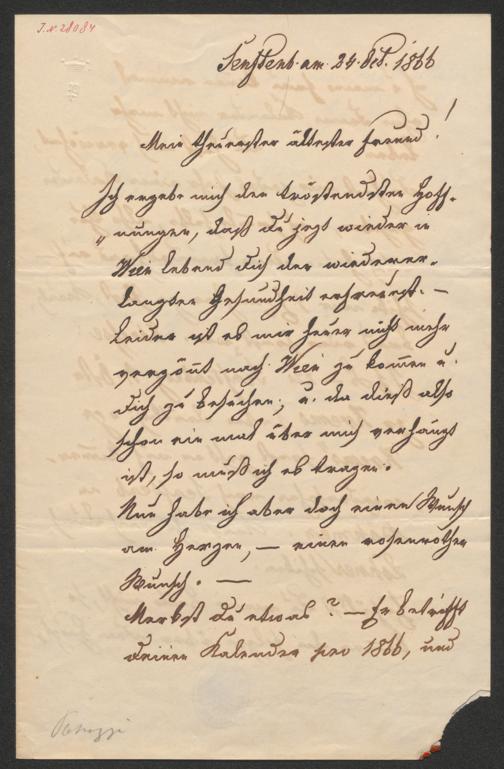 J. N. 28084
am 24. Oct. 1866
Mein theuerster ältester Freund!
Ich ergebe mich den tröstendsten Hoff-
„nungen, daß Du jezt wieder in
Wien lebend Dich der wiederer-
langten Gesundheit erfreuest. —
Leider ist es mir heuer nicht mehr
vergönnt nach Wien zu kommen u.
Dich zu besuchen; u. da dieß also
schon ein mal über mich verhängt
ist, so muß ich es tragen.
Nun habe ich aber doch einen Wunsch
am Herzen, — einen rosenrothen
Wunsch. —
Merkst Du etwas? — Er betrifft
Deinen Kalender pro 1866, und